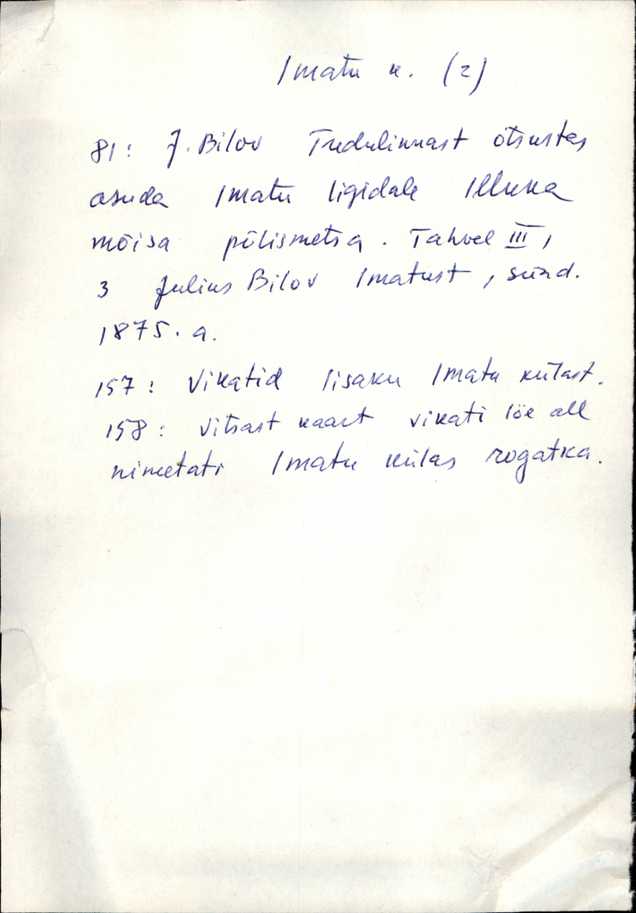 Imatu k. (2)
81: J. Bilov Tudulinnast otsustas
asuda Imatu ligidale Illuka
mõisa põlismetsa. Tahvel III,
3 Julius Bilov Imatust, sünd.
1875. a.
157: Vikatid Iisaku Imatu külast.
158: Vitsast kaart vikati löe all
nimetati Imatu külas rogatka.